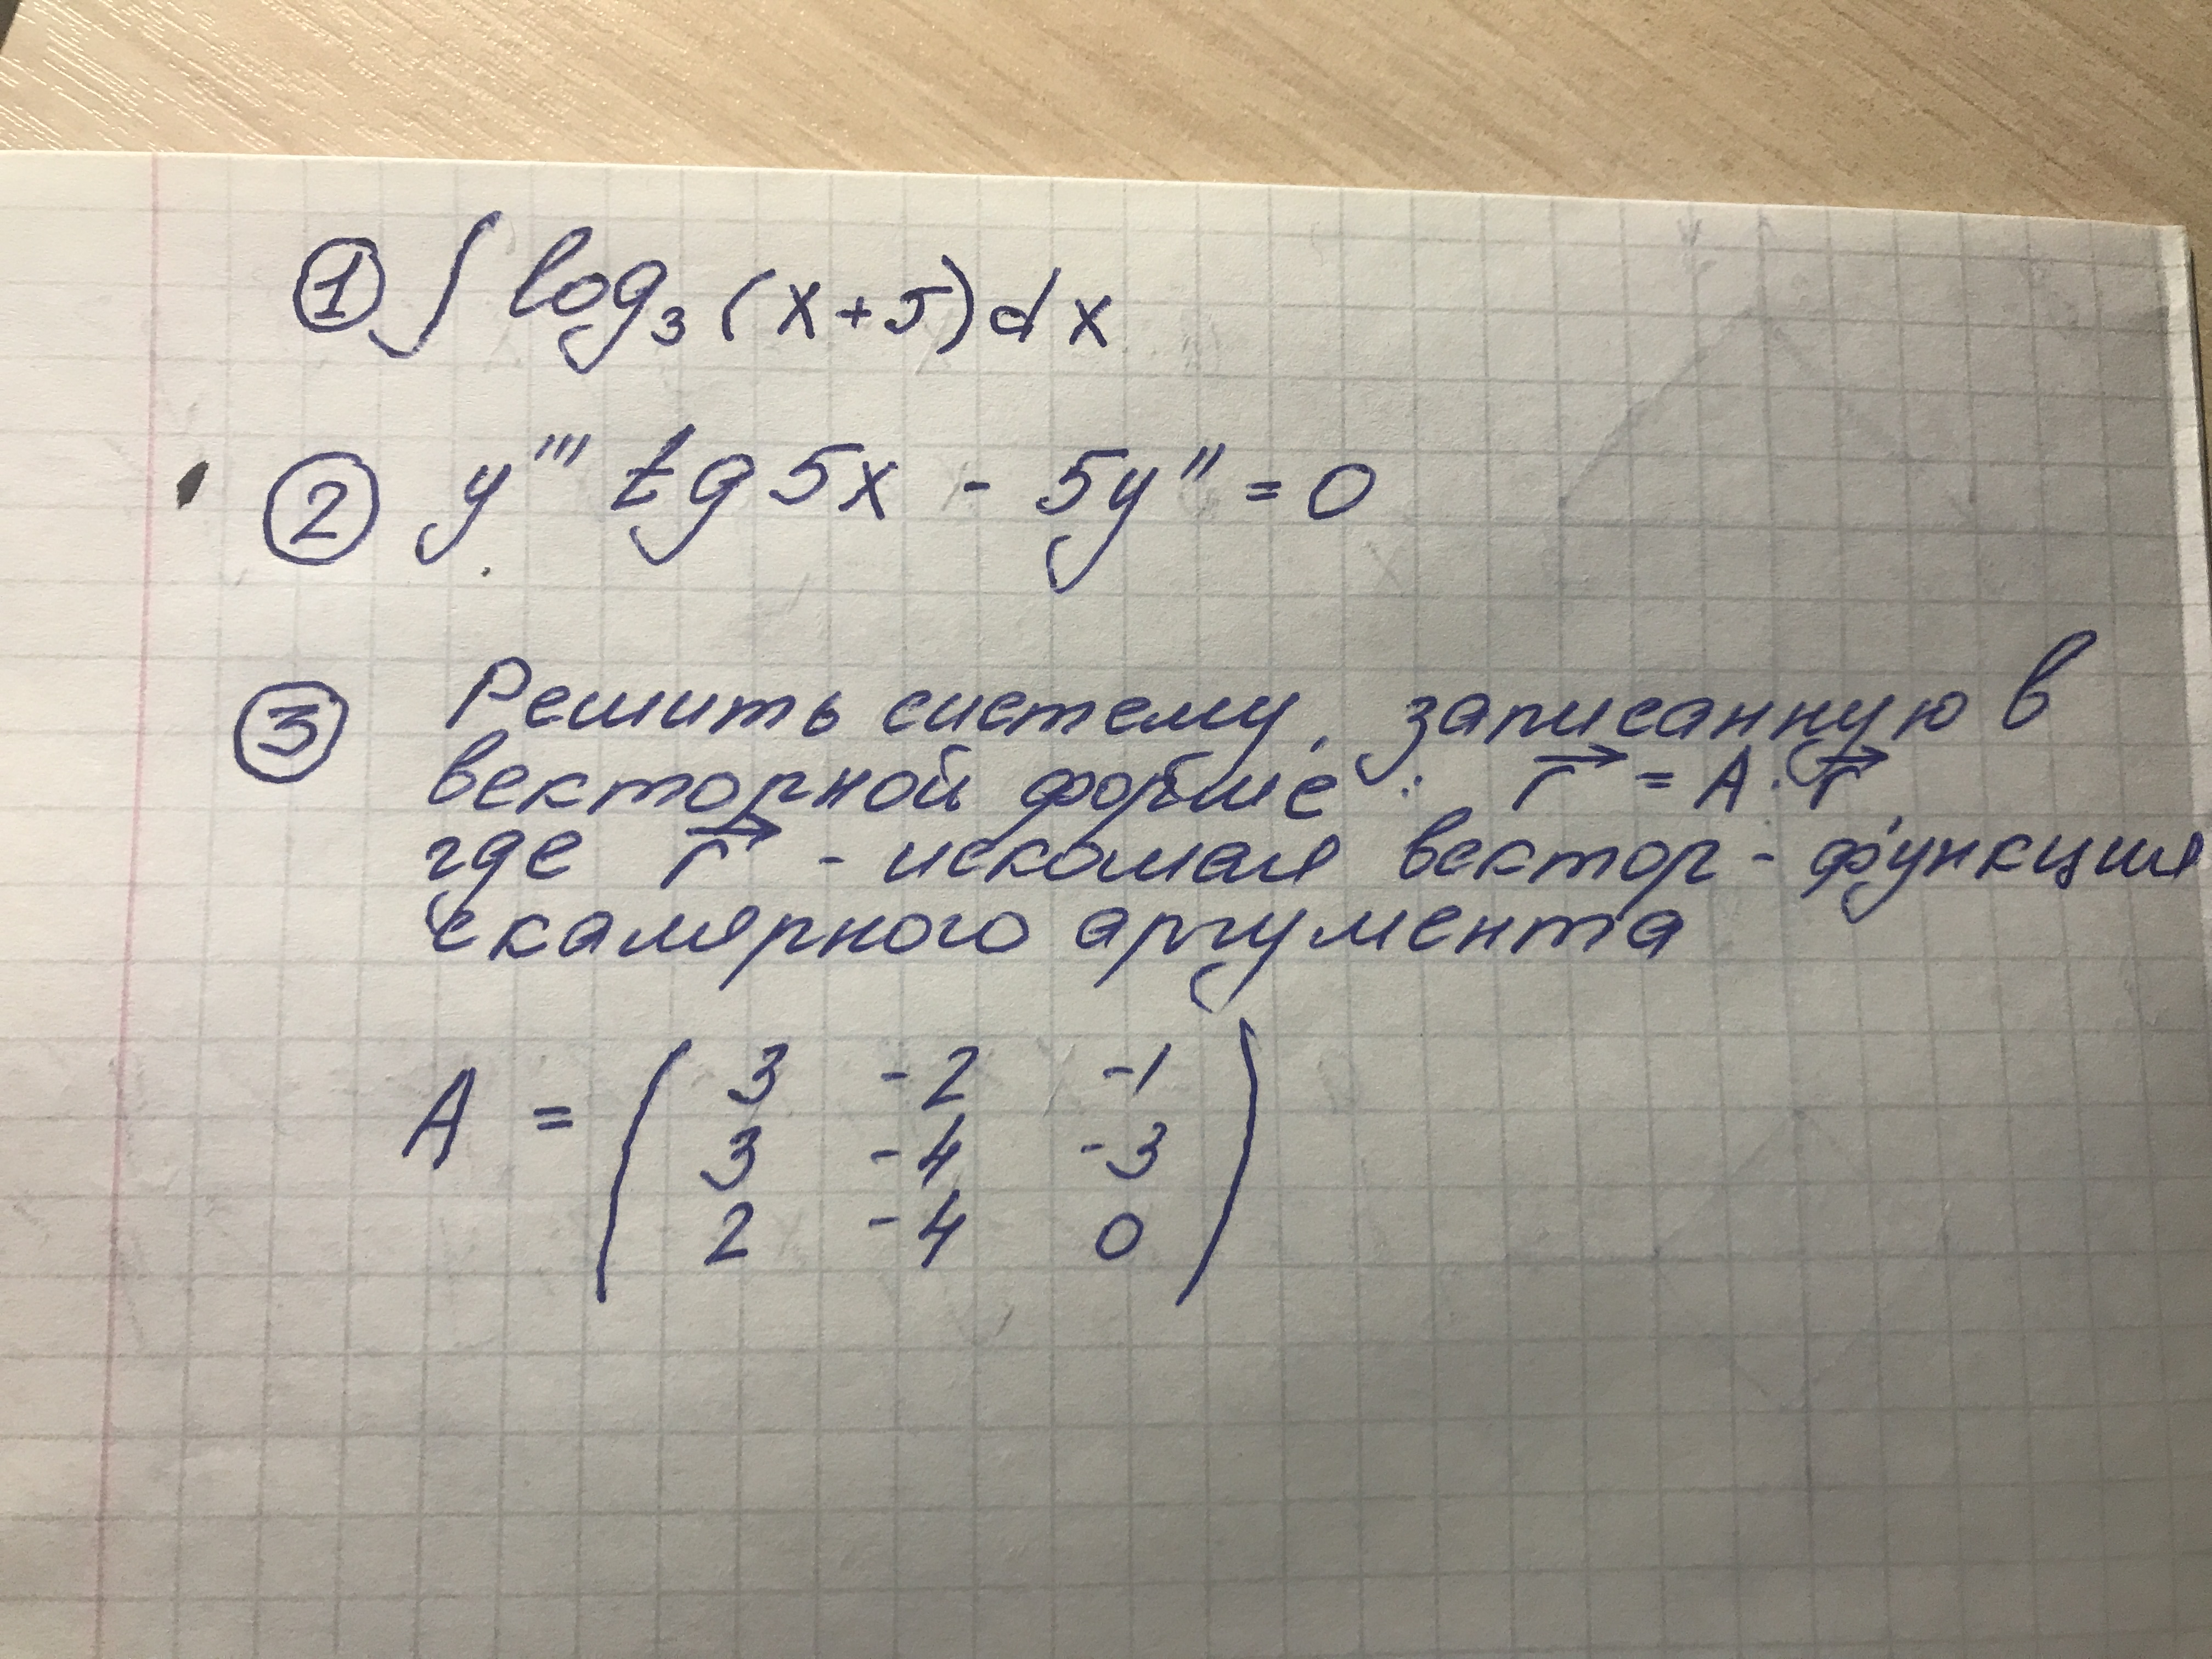 ① ∫ log₃ (x+5) dx
② y''' tg 5x - 5y'' = 0
③ Решить систему, записанную в
векторной форме: r⃗ = A · r⃗
где r⃗ - искомая вектор - функция
скалярного аргумента
A = ( 3 -2 -1
3 -4 -3
2 -4 0 )